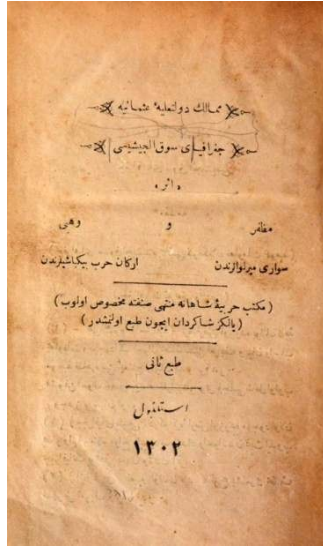 ممالك دولتعلیهٔ عثمانیه
جغرافیای سوق الجیشیسی
اثر
مظفر و وهبی
سواری میرلوالرندن ارکان حرب بیکباشیلرندن
( مکتب حربیهٔ شاهانه منتهی صنفنه مخصوص اولوب )
( یالکز شاکردان ایچون طبع اولنمشدر )
طبع ثانی
استانبول
١٣٠٢